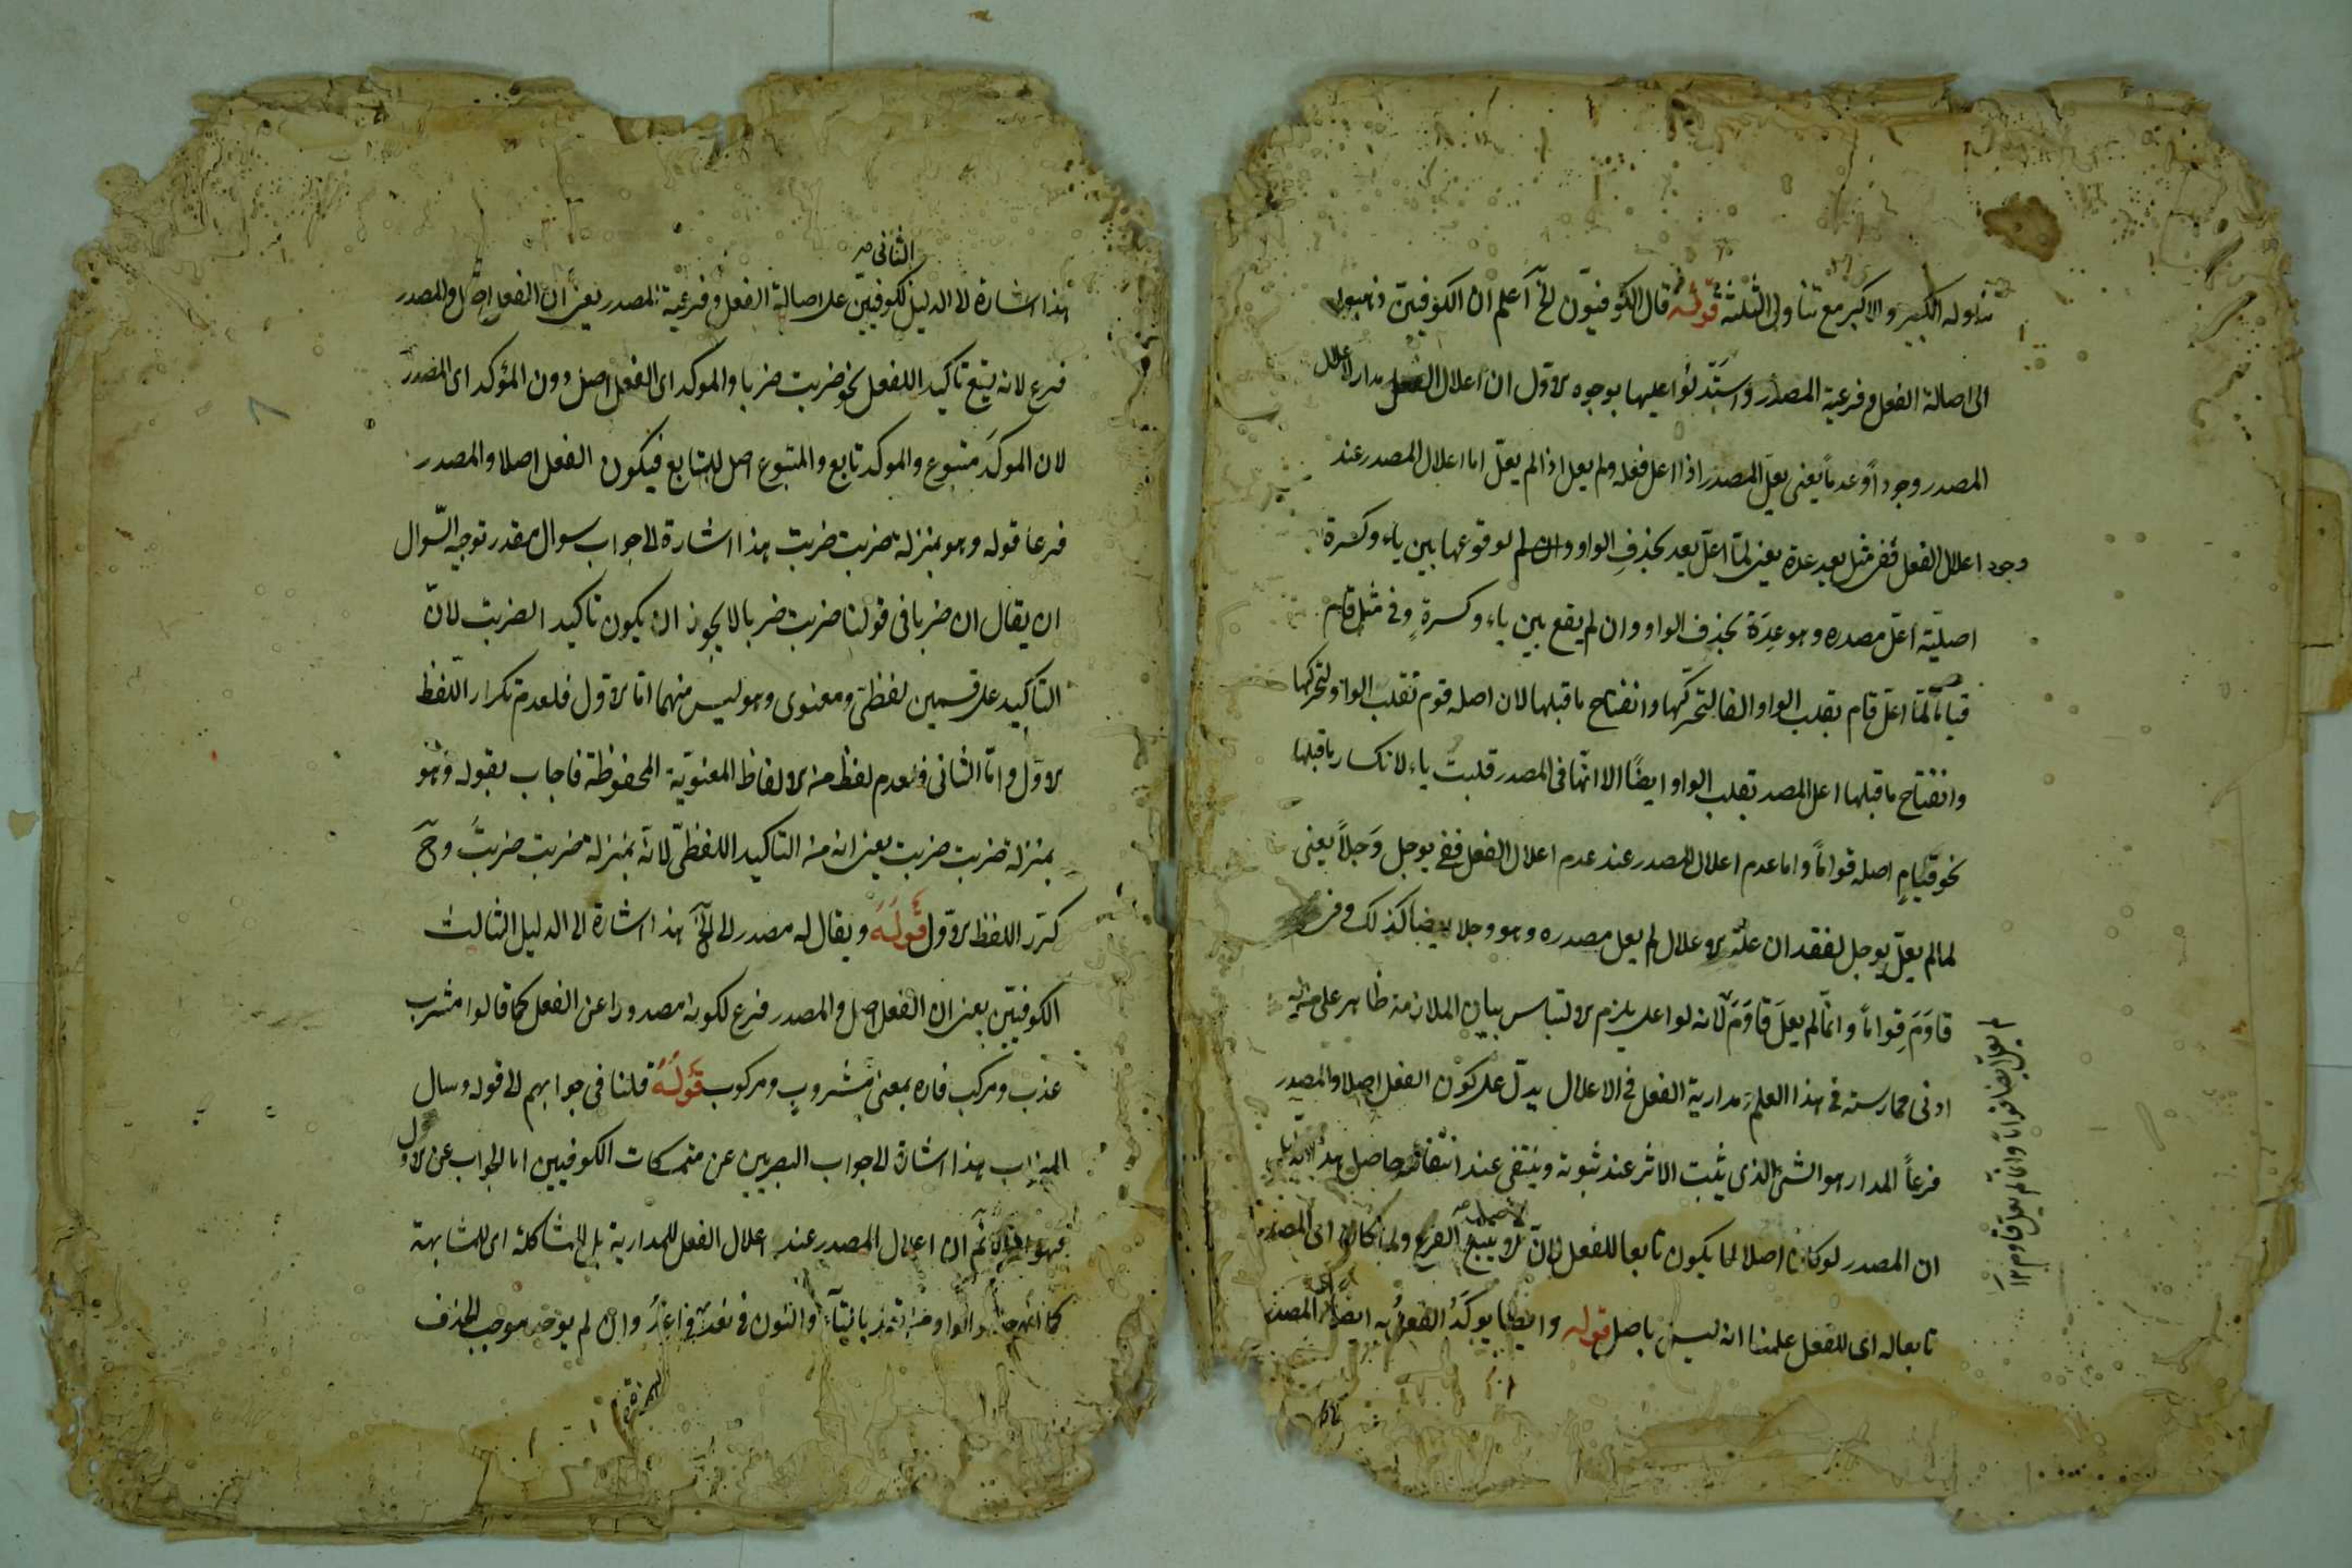 تناوله الكبير والاكبر مع تناولى الثلثة قوله قال الكوفيّون الخ اعلم ان الكوفيين ذهبوا
الى اصالة الفعل وفرعية المصدر واستدلوا عليها بوجوه الاول ان اعلال الفعل مدار لاعلال
المصدر وجوداً وعدماً يعنى يعلّ المصدر اذا اعل فعله ولم يعل اذا لم يعلّ اما اعلال المصدر عند
وجود اعلال الفعل ففى مثل يعد عدة يعنى لمّا اعلّ يعد بحذف الواو لوقوعها بين ياء وكسرة
اصليّة اعلّ مصدره وهو عِدَة بحذف الواو وان لم يقع بين ياء وكسرةٍ وفى مثل قام
قياماً لمّا اعلّ قام بقلب الواو الفا لتحركها وانفتاح ما قبلها لان اصله قوم تقلب الواو لتحركها
وانفتاح ما قبلها اعل المصدر بقلب الواو ايضًا الا انها فى المصدر قلبت ياء لانكسار ما قبلها
نحو قيامٍ اصله قواماً واما عدم اعلال المصدر عند عدم اعلال الفعل ففى يوجل وَجلاً يعنى
لما لم يعلّ يوجل لفقدان علّة الاعلال لم يعل مصدره وهو وجلا ايضا كذلك وفى
قاوَمَ قِواماً وانمّا لم يعلّ قاوَمَ لانه لو اعل يلزم الالتباس بيان الملازمة ظاهر على من له
ادنى ممارسته فى هذا العلم ومدارية الفعل فى الاعلال يدلّ على كون الفعل اصلا والمصدر
فرعاً المدار هو الشئ الذى يثبت الاثر عند ثبوته وينتفى عند انتفائه وحاصل هذا
ان المصدر لو كان اصلا لما يكون تابعا للفعل لانّ الاصل لا يتبع الفرع ولما كان اى المصدر
تابعا له اى للفعل علمنا انه ليس باصل قوله وايضا يوكّدُ الفعلُ به ايضا اى المصدر
لم يعلّ ايضا قواماً وانما لم يعلّ قاوم ١٢
الثانى صح
هذا اشارة الى الدليل للكوفيين على اصالة الفعل وفرعية المصدر يعنى ان الفعل اصل والمصدر
فرع لانه يقع تاكيدا للفعل نحو ضربت ضربا والموكد اى الفعل اصل دون المؤكد اى المصدر
لان الموكَد متبوع والموكد تابع والمتبوع اصل للتابع فيكون الفعل اصلا والمصدر
فرعا قوله وهو بمنزلة ضربت ضربت هذا اشارة الى جواب سوال مقدر توجيه السّوال
ان يقال ان ضربا فى قولنا ضربت ضربا لا يجوز ان يكون تاكيدا لضربت لانّ
التاكيد على قسمين لفظى ومعنوى وهو ليس منهما امّا الاول فلعدم تكرار اللفظ
الاوّل وامّا الثانى فلعدم لفظ من الالفاظ المعنويّة المحفوظة فاجاب بقوله وهو
بمنزلة ضربت ضربت يعنى انه من التاكيد اللفظىّ لانّه بمنزلة ضربت ضربتُ وح
كرّر اللفظ الاوّل قوله ويقال له مصدر الى الخ هذا اشارة الى الدليل الثالث
الكوفيّين يعنى ان الفعل اصل والمصدر فرع لكونه مصدورا عن الفعل كما قالوا مشرب
عذب ومركب فاره بمعنى مشروبٍ ومركوب قوله قلنا فى جوابهم الى قوله وسال
الميزاب هذا اشارة الى جواب البصريين عن متمسكات الكوفيين اما الجواب عن الاول
فهو ان اعلال المصدر عند اعلال الفعل لا للمدارية بل للمشاكلة اى للمشابهة
الواو من تعد بالتاء والنون فى نعد وان لم يوجد موجب الحذف
الهمزة